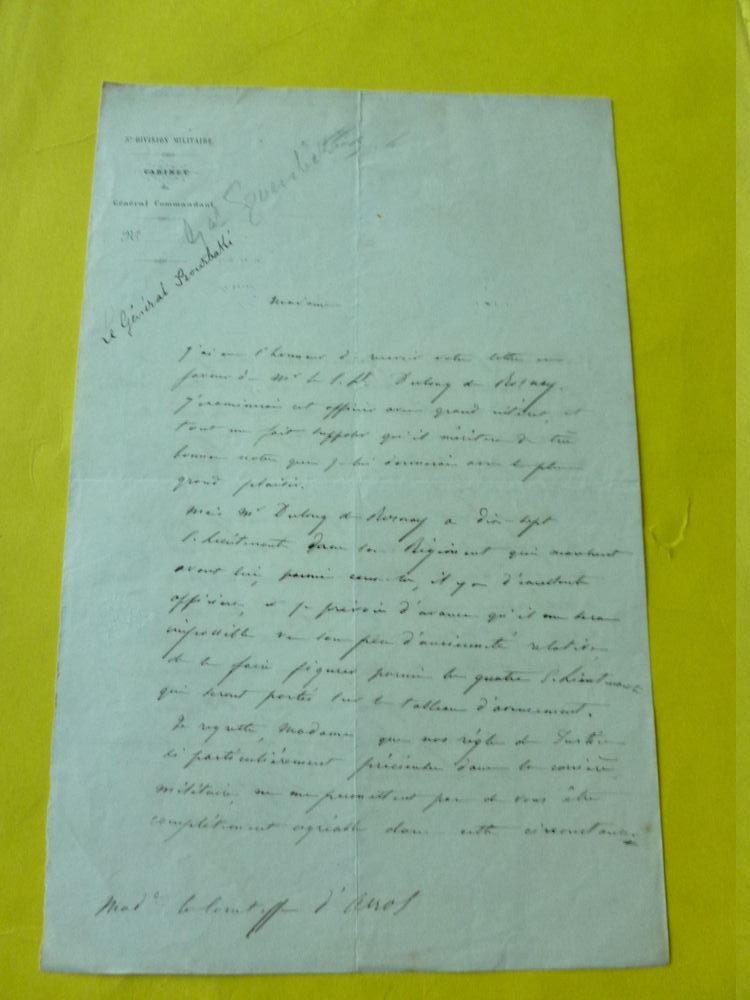 5e DIVISION MILITAIRE
CABINET
du
Général Commandant
No
Gal Bourbaki
Le Général Bourbaki
Madame
J'ai eu l'honneur de recevoir votre lettre en
faveur de Mr le S. Lt Dulong de Rosnay.
J'examinerai cet officier avec grand intérêt, et
tout me fait supposer qu'il méritera de très
bonnes notes que je lui donnerai avec le plus
grand plaisir.
Mais Mr Dulong de Rosnay a dix-sept
S. Lieutenants dans son Régiment qui marchent
avant lui, parmi ceux-ci, il y a d'excellents
officiers, et je prévois d'avance qu'il me sera
impossible vu son peu d'ancienneté relative
de le faire figurer parmi les quatre S. Lieutenants
qui seront portés sur le tableau d'avancement.
Je regrette, Madame que nos règles de Justice
si particulièrement précieuses dans la carrière
militaire, ne me permettent pas de vous être
complètement agréable dans cette circonstance
Made la Comtesse d'Arros